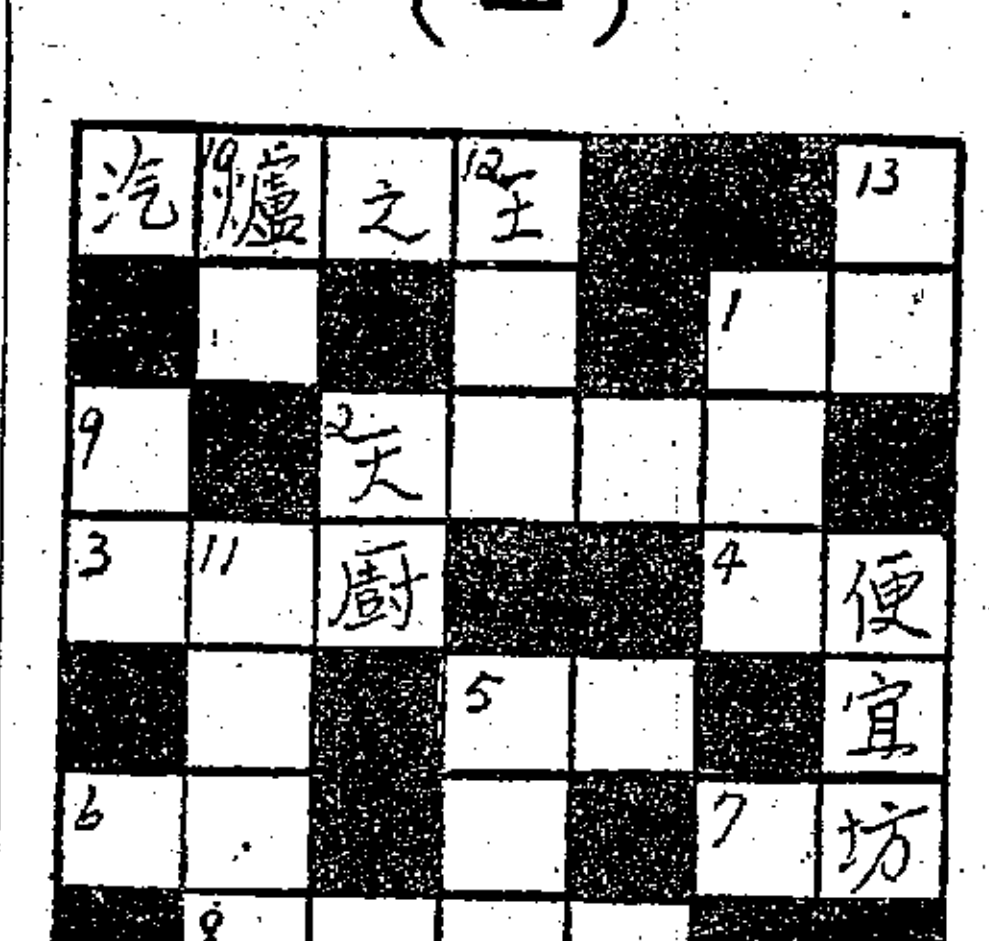 汽 10 爐 之 12 王 13
1
9 2 天
3 11 廚 4 便
5 宜
6 7 坊
8